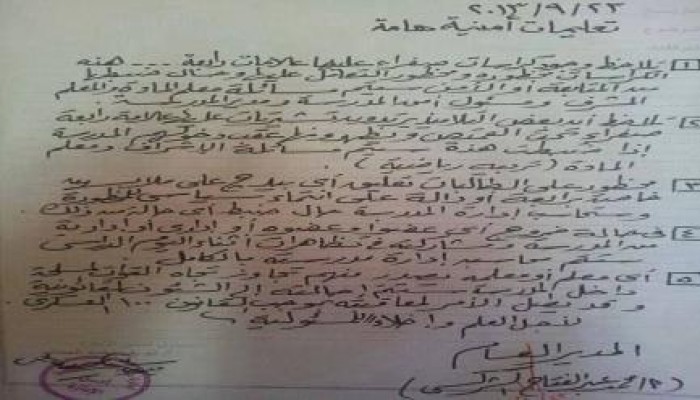 ٢٠١٣/٩/٢٣
تعليمات أمنية هامة
١ يلاحظ وجود كراسات صفراء عليها علامات رابعة --- هذه
الكراسات محظورة ومحظور التعامل عليها وحال ضبطها
من المتابعة أو الأمن سيتم مساءلة معلم المادة والمعلم
المشرف ومسئول أمن المدرسة ومدير المدرسة.
٢ يلاحظ أن بعض التلاميذ يرتدون تشيرتات عليها علامة رابعة
صفراء تحت القميص وتظهر عقب دخولهم المدرسة
إذا ضبطت هذه سيتم مساءلة الإشراف ومعلم
المادة (تربية رياضية).
٣ محظور على الطالبات تعليق أي بادج على ملابسهن
خاصة رابعة أو دالة على انتماء سياسي محظورة
وستحاسب إدارة المدرسة حال ضبط أي حالة من ذلك.
٤ في حالة خروج أي عضو أو عضوة أو إداري أو إدارية
من المدرسة ومشاركته في تظاهرات أثناء اليوم الدراسي
ستتم محاسبة إدارة المدرسة بالكامل.
٥ أي معلم أو معلمة يصدر منهم تجاوز تجاه القوات المسلحة
داخل المدرسة سيتم إحالته إلى الشئون القانونية
وقد يصل الأمر لمعاقبته بموجب القانون ١٠٠ العسكري
المدير العام
(أ/ محمد عبد الفتاح الشركسي)